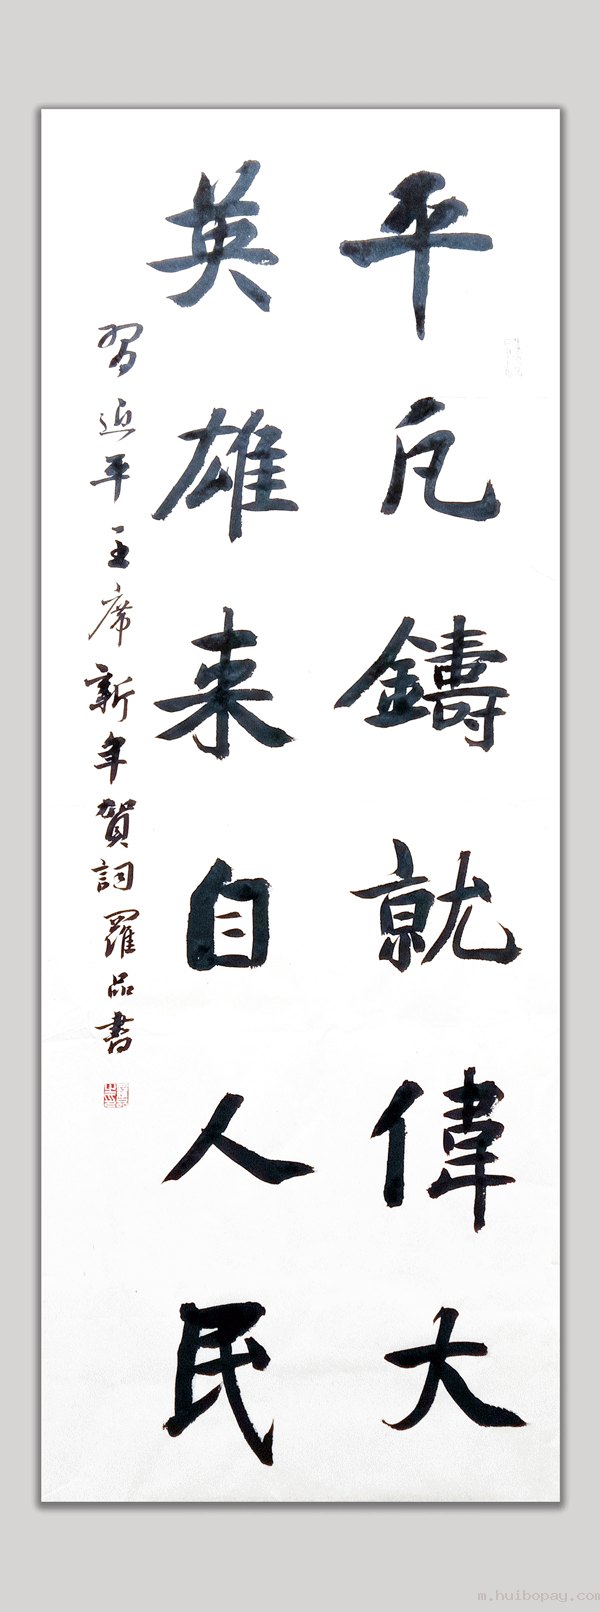 平凡鑄就偉大
英雄来自人民
習近平主席新年賀詞 羅品書
m.huibopay.com